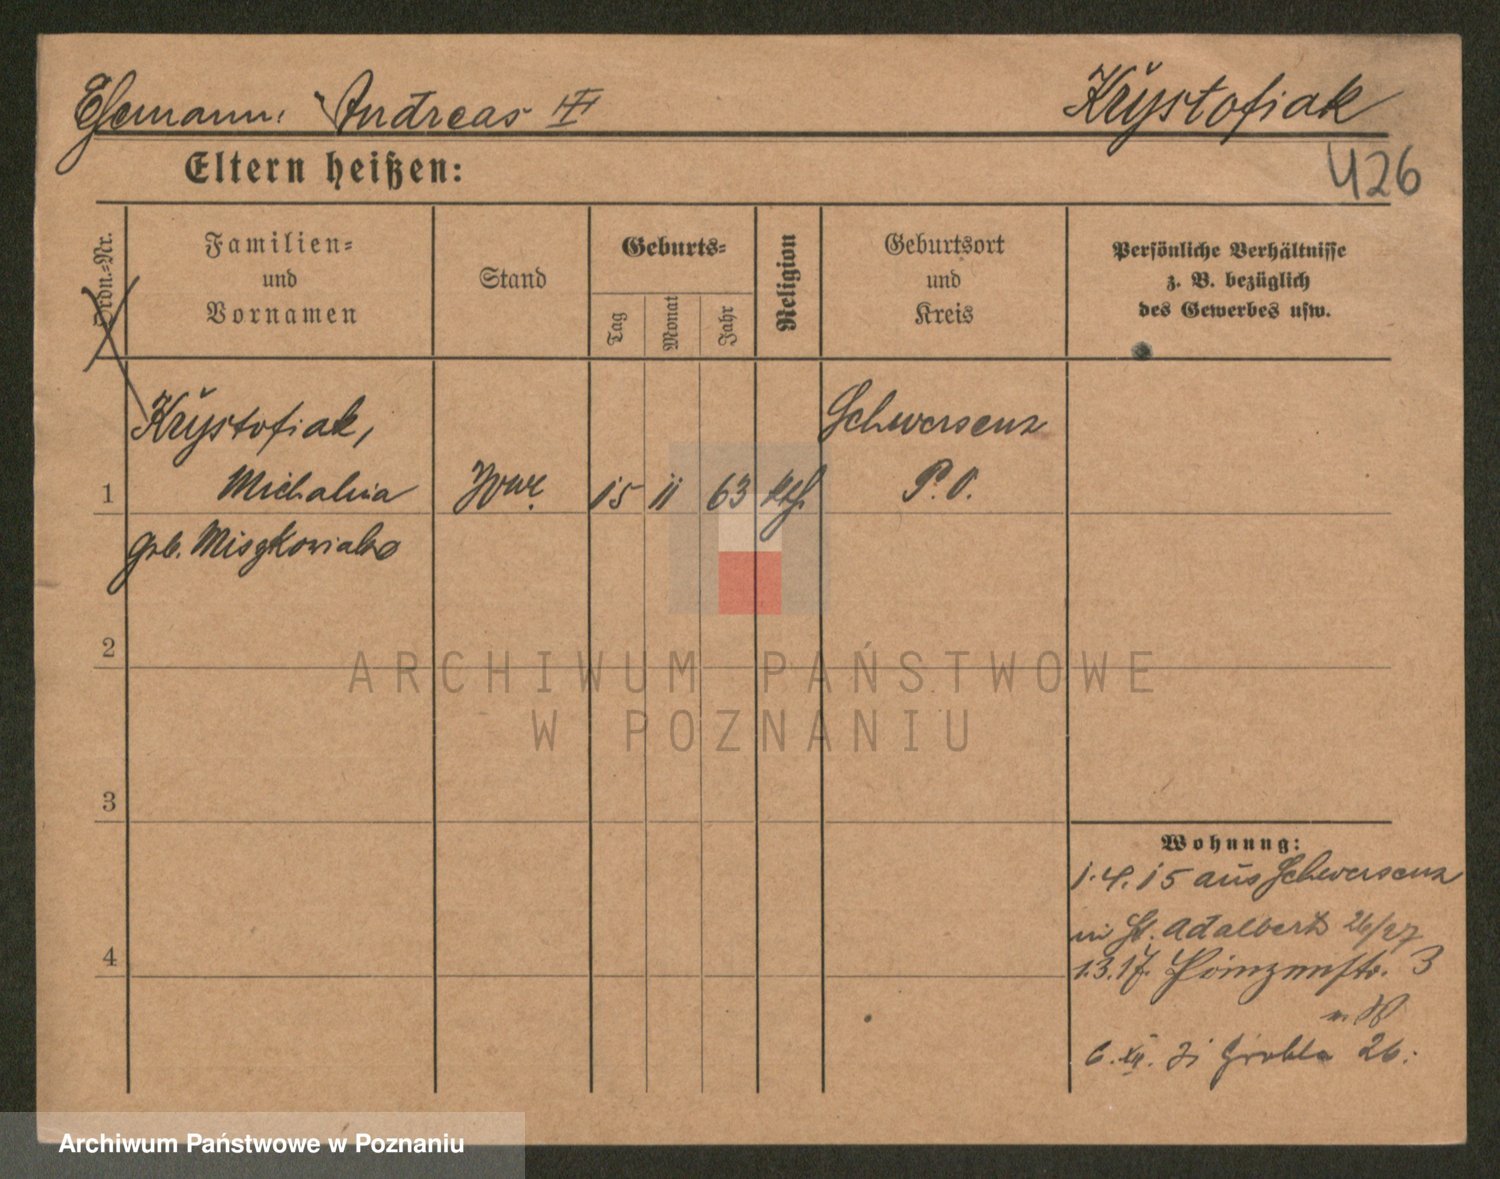 Ehemann: Andreas III Krÿstofiak
426
Eltern heißen:
Ordn.-Nr.
Familien-
und
Vornamen
Stand
Geburts-
Tag
Monat
Jahr
Religion
Geburtsort
und
Kreis
Persönliche Verhältnisse
z. B. bezüglich
des Gewerbes usw.
Krÿstofiak, Schwersenz
1 Michalina Wwe. 15 11 63 kth. P. O.
geb. Miszkowiak
2
3
4
Wohnung:
1.4.15 aus Schwersenz
St. Adalbert 26/27
1.3.17. 3
Grobla 26.
ARCHIWUM PAŃSTWOWE
W POZNANIU
Archiwum Państwowe w Poznaniu